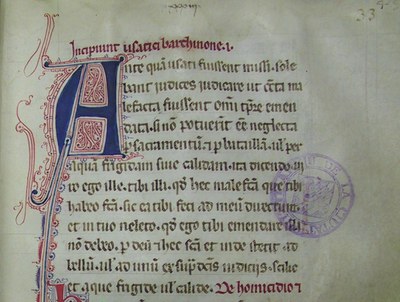 xxxiiij
33
Incipiunt usatici barchinone .i.
Ante quā usati fuissent missi. sole
bant judices judicare ut cūcta ma
lefacta fuissent omī tp̄re emen
data. si nō potuerit eē neglecta
p̱ sacramentum ⁊ p̱ batallam. ul' per
aquā frigidam siue calidam. ita dicendo. iu
ro ego ille. tibi illi. qd̄ hec male fēm que tibi
habeo fēm. sic ea tibi feci ad meū directum.
et in tuo neleto. qd̄ ego tibi emendare illi
nō debeo. p̱ deū ⁊ hec scā et inde steterit. ad
bellū. ul' ad unū ex sup̱ dcīs iudiciis. scilic
et aque frigide ul' calide. De homicidio